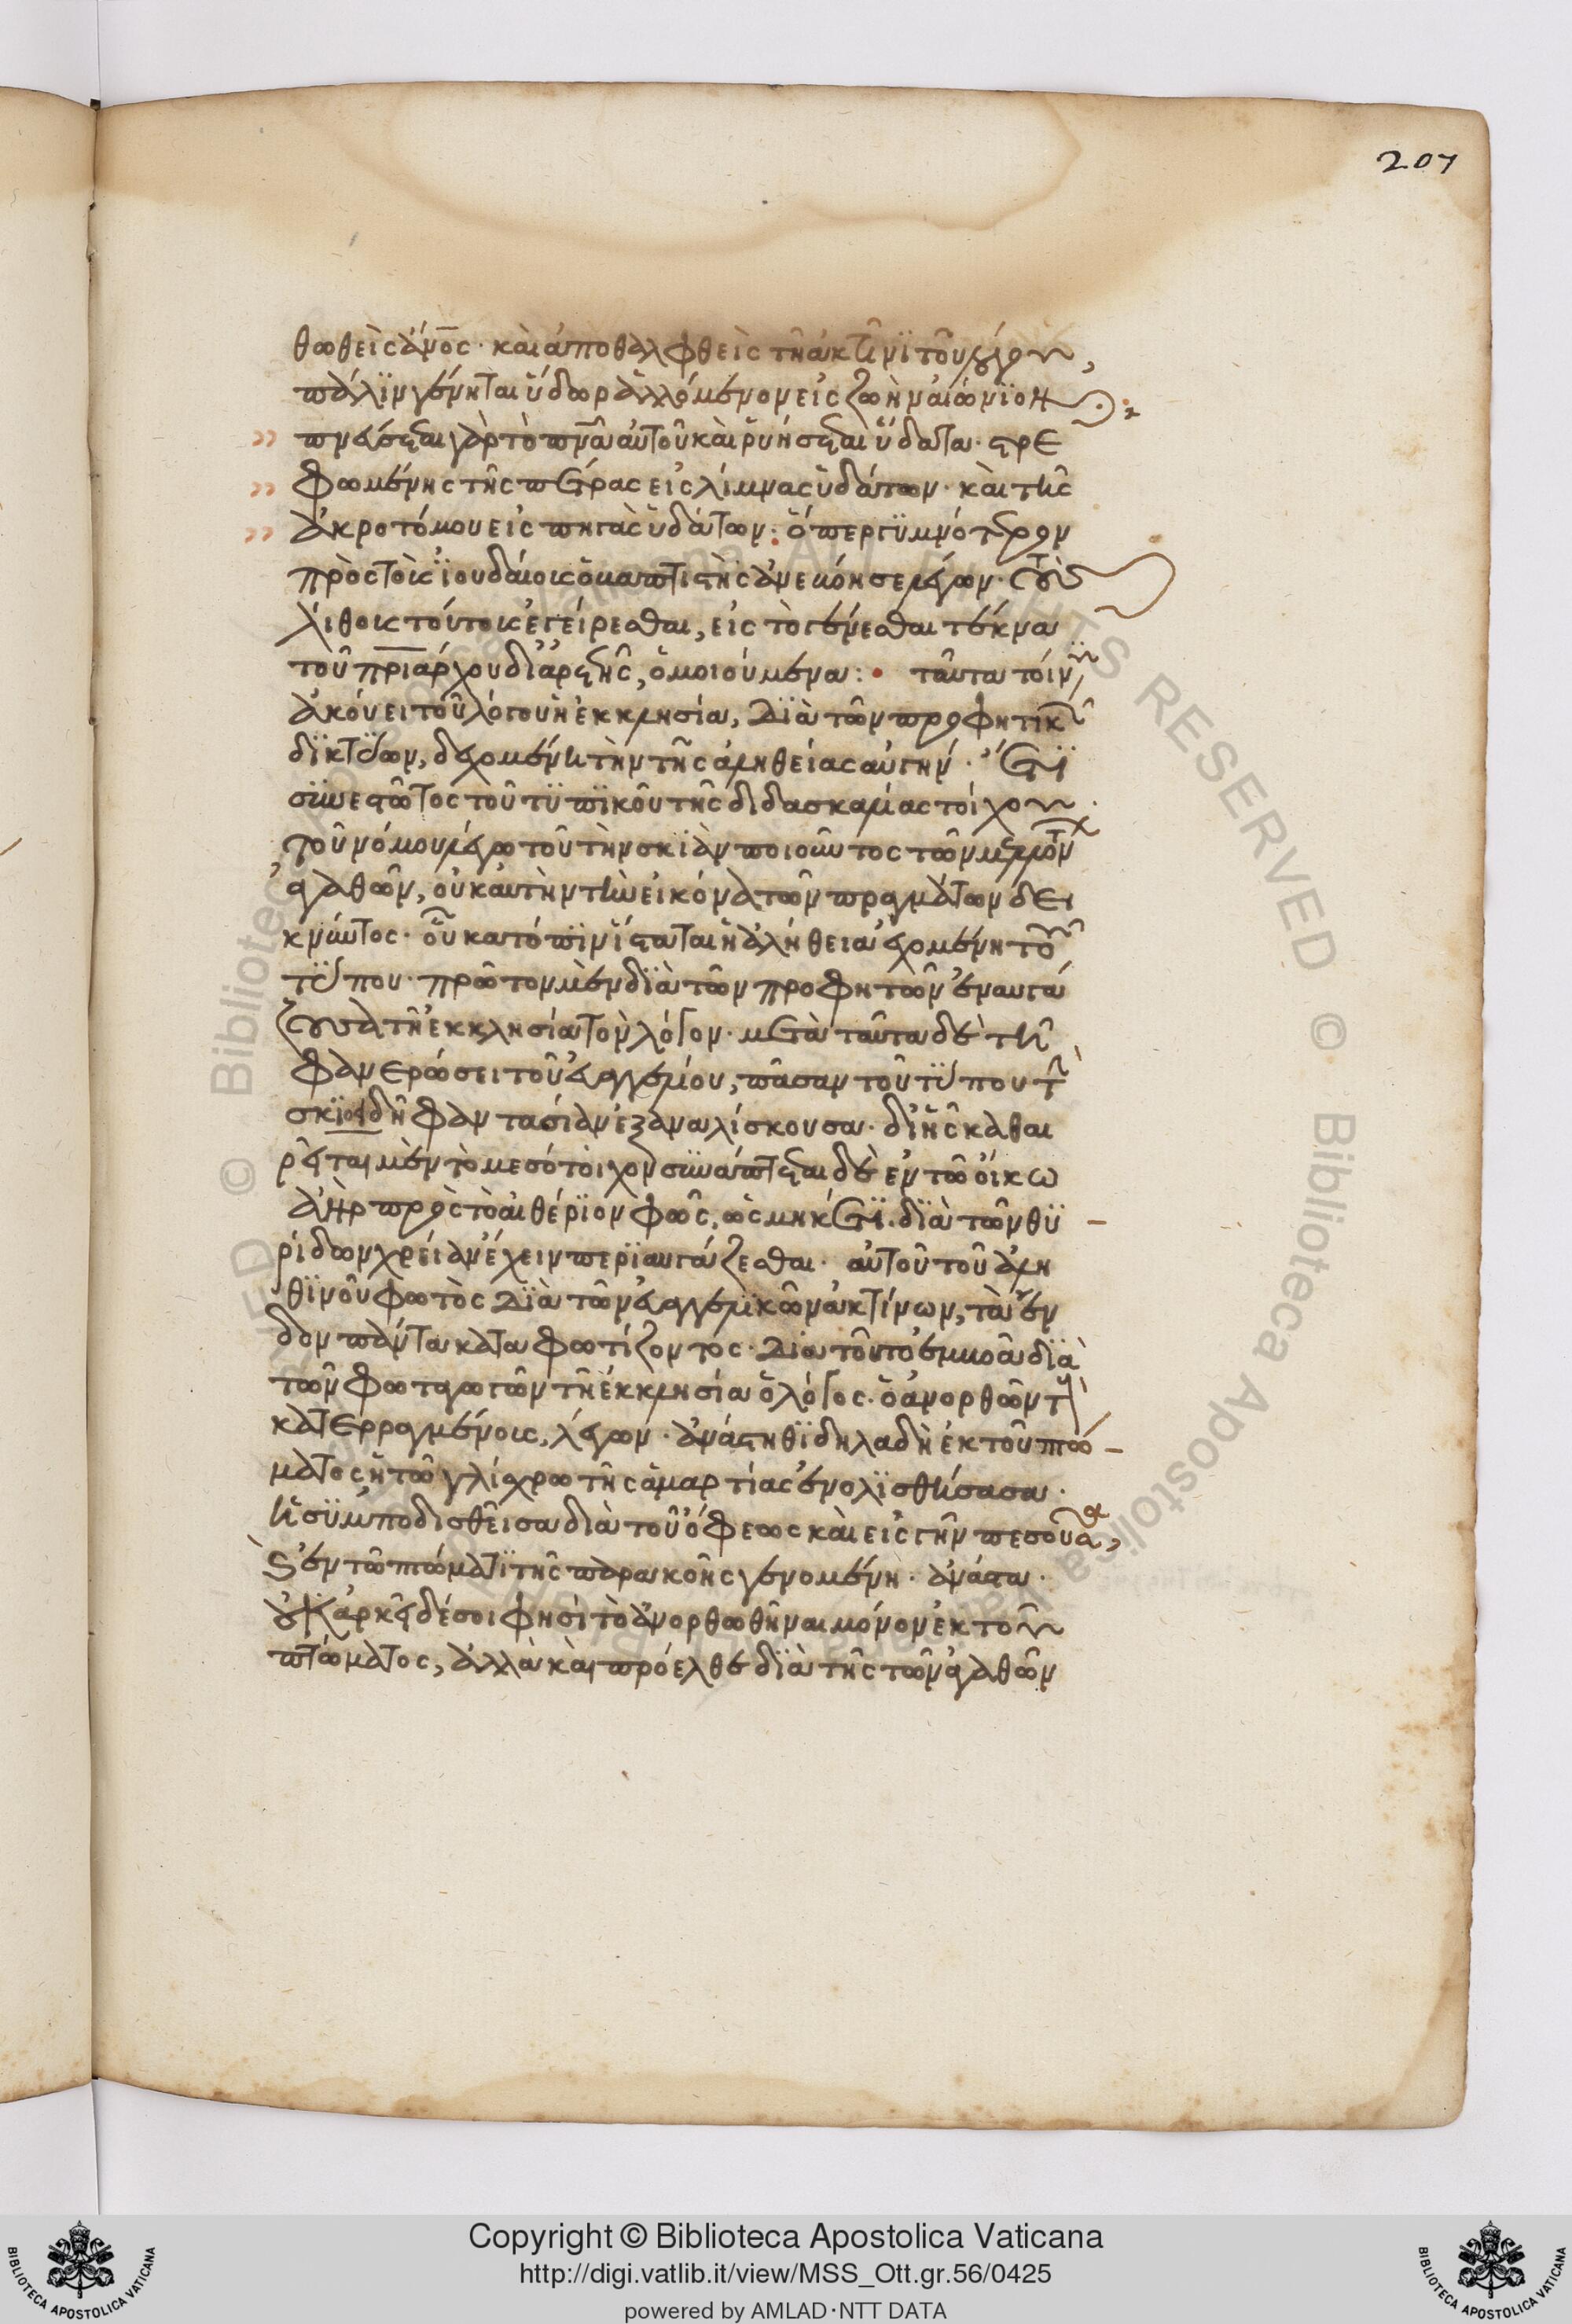 207
θωθεὶς ἄνος· καὶ ἀποθαλφθεὶς τῆ ἀκτῖνι τοῦ λόγου,
πάλιν γένηται ὕδωρ ἁλλόμενον εἰς ζωὴν αἰώνιον
πνεύσεται γὰρ τὸ πνᾶ αὐτοῦ καὶ ῥυήσεται ὕδατα· στρε
φωμένης τῆς πέτρας εἰς λίμνας ὑδάτων· καὶ τῆς
ἀκροτόμου εἰς πηγὰς ὑδάτων· ὅπερ γυμνότερον
πρὸς τοὺς ἰουδαίους ὁ βαπτιστὴς ἀνεβόησε λέγων· τοὺς
λίθους τούτους ἐγείρεσθαι, εἰς τὸ γενέσθαι τέκνα
τοῦ πριάρχου δι' ἀρετῆς, ὁμοιούμενα: ταῦτα τοίνυν
ἀκούει τοῦ λόγου ἡ ἐκκλησία, διὰ τῶν προφητικῶν
δικτύων, δεχομένη τὴν τῆς ἀληθείας αὐγήν· ἔτι
συνεστῶτος τοῦ τυπικοῦ τῆς διδασκαλίας τοίχου·
τοῦ νόμου λέγω τοῦ τὴν σκιὰν ποιοῦντος τῶν μελλόντων
ἀγαθῶν, οὐκ αὐτὴν τὴν εἰκόνα τῶν πραγμάτων δει
κνύντος· οὗ κατόπιν ἵσταται ἡ ἀλήθεια ἐχομένη τοῦ
τύπου· πρῶτον μὲν διὰ τῶν προφητῶν ἐναυγά
ζουσα τῆ ἐκκλησία τὸν λόγον· μετὰ ταῦτα δὲ τῆ
φανερώσει τοῦ εὐαγγελίου, πᾶσαν τοῦ τύπου τὴν
σκιοειδῆ φαντασίαν ἐξαναλίσκουσα· δι' ἧς καθαι
ρεῖται μὲν τὸ μεσότοιχον συνάπτεται δὲ ἐν τῶ οἴκω
ἀὴρ πρὸς τὸ αἰθέριον φῶς, ὡς μηκέτι διὰ τῶν θυ
ρίδων χρείαν ἔχειν περιαυγάζεσθαι· αὐτοῦ τοῦ ἀλη
θινοῦ φωτὸς διὰ τῶν εὐαγγελικῶν ἀκτίνων, τὰ ἔν
δον πάντα καταφωτίζοντος· διὰ τοῦτο ἐμβοᾶ διὰ
τῶν φωταγωγῶν τῆ ἐκκλησία ὁ λόγος· ὁ ἀνορθῶν τοὺς
κατερραγμένους, λέγων· ἀνάστηθι δηλαδὴ ἐκ τοῦ πτώ
ματος ἡ τῶ γλίσχρω τῆς ἁμαρτίας ἐνολισθήσασα·
ἡ συμποδισθεῖσα διὰ τοῦ ὄφεως καὶ εἰς γῆν πεσοῦσα,
καὶ ἐν τῶ πτώματι τῆς παρακοῆς γενομένη· ἀνάστα·
οὐκ ἀρκεῖ δέ σοι φησὶ τὸ ἀνορθωθῆναι μόνον ἐκ τοῦ
πτώματος, ἀλλὰ καὶ πρόελθε διὰ τῆς τῶν ἀγαθῶν
Copyright © Biblioteca Apostolica Vaticana
http://digi.vatlib.it/view/MSS_Ott.gr.56/0425
powered by AMLAD·NTT DATA